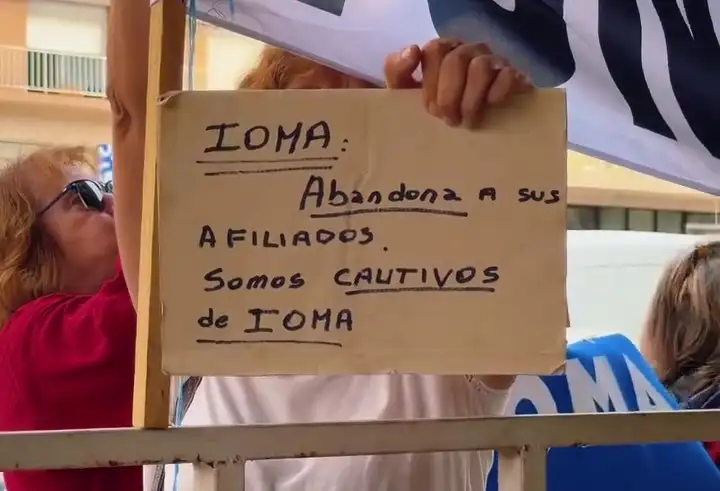 IOMA:
Abandona A sus
AFILIADOS.
Somos CAUTIVOS
de IOMA
OMA